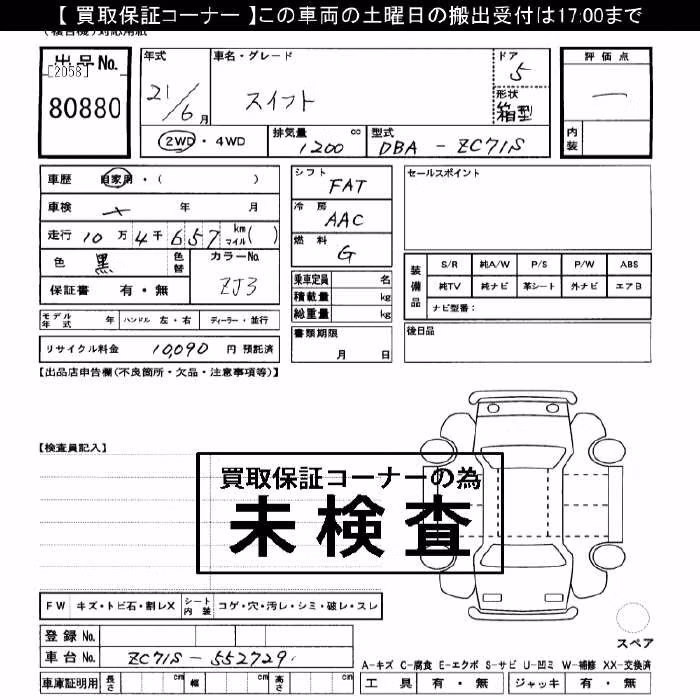 【 買取保証コーナー 】この車両の土曜日の搬出受付は17:00まで
出品No.
[2058]
80880
年式
21/6月
車名・グレード
スイフト
ドア
5
形状
箱型
評価点
—
内装
2WD・4WD
排気量 1200 cc
型式 DBA - ZC71S
車歴 自家用・( )
車検 × 年 月
走行 10万4千657 km マイル( )
色 黒 色替
カラーNo. ZJ3
保証書 有・無
シフト FAT
冷房 AAC
燃料 G
乗車定員 名
積載量 kg
総重量 kg
セールスポイント
装備品
S/R 純A/W P/S P/W ABS
純TV 純ナビ 革シート 外ナビ エアB
ナビ型番:
モデル年式 年 ハンドル 左・右 ディーラー・並行
書類期限 月 日
後日品
リサイクル料金 10,090 円 預託済
【出品店申告欄(不良箇所・欠品・注意事項等)】
【検査員記入】
買取保証コーナーの為
未検査
FW キズ・トビ石・割レX シート内装 コゲ・穴・汚レ・シミ・破レ・スレ
登録No.
車台No. ZC71S-552729
車庫証明用 長さ cm 幅 cm 高さ cm
スペア
A-キズ C-腐食 E-エクボ S-サビ U-凹ミ W-補修 XX-交換済
工具 有・無 ジャッキ 有・無